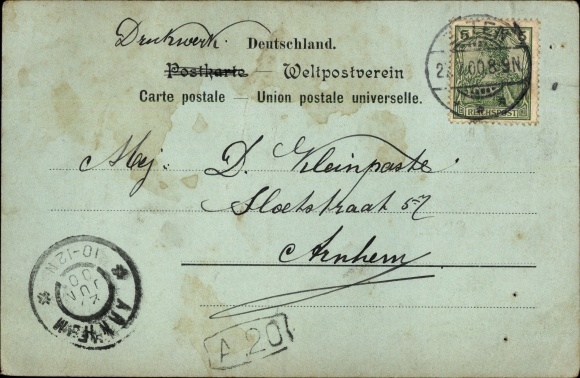 Drukwerk. Deutschland.
Postkarte — Weltpostverein
Carte postale — Union postale universelle.
5 5
REICHSPOST
00.8-9N
Mej. D. Kleinpaste
Sloetstraat 57
Arnhem
ARNHEM
JUN
00
10-12N
A 20